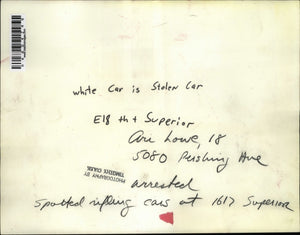 white Car is Stolen Car
E18 th + Superior
Ari Lowe, 18
5080 Rushing Ave
PHOTOGRAPHY BY
TIMOTHY CULEK
arrested
Spotted rifling cars at 1617 Superior